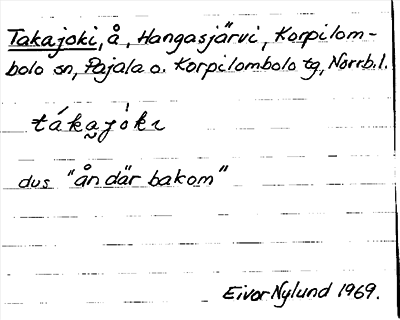 Takajoki, å, Hangasjärvi, Korpilom-
bolo sn, Pajala o. Korpilombolo tg, Norrb.l.
táka̰jòkɩ
dvs "ån där bakom"
Eivor Nylund 1969.